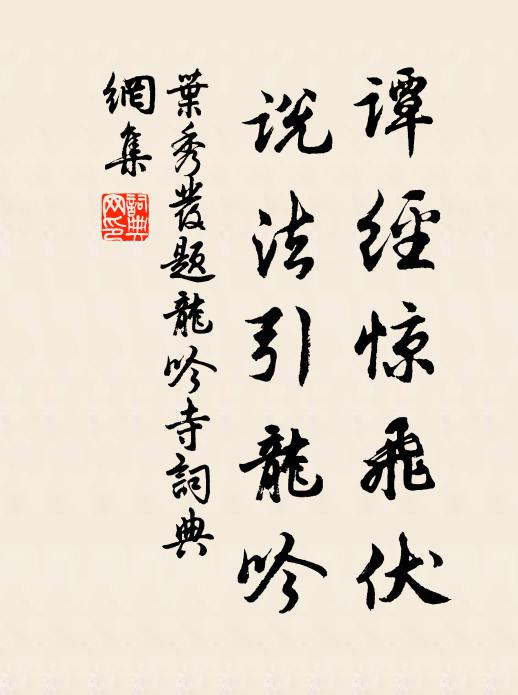 譚經惊飛伏
説法引龍吟
葉秀發題龍吟寺詞典
網集
詞典网印